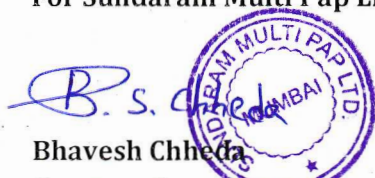 For Sundaram Multi Pap L
B. S. Chheda
SUNDARAM MULTI PAP LTD.
MUMBAI
Bhavesh Chheda